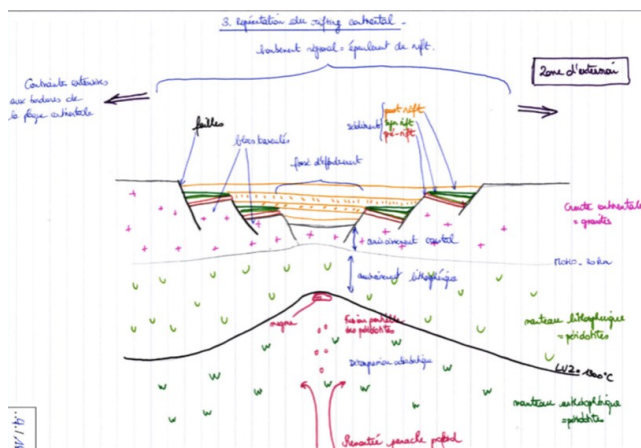 3. Représentation du rifting continental.
bombement régional = épaulement de rift.
Contrainte extensives
aux bordures de
la plaque continentale
Zone d'extension
failles
blocs basculés
fossé d'effondrement
sédiments
post rift
syn rift
pré-rift
Croûte continentale
= granites
amincissement crustal
MOHO
amincissement lithosphérique
magma
Fusion partielle
des péridotites
manteau lithosphérique
= péridotites
LVZ = 1300°C
Décompression adiabatique
manteau asthénosphérique
= péridotites
Remontée panache